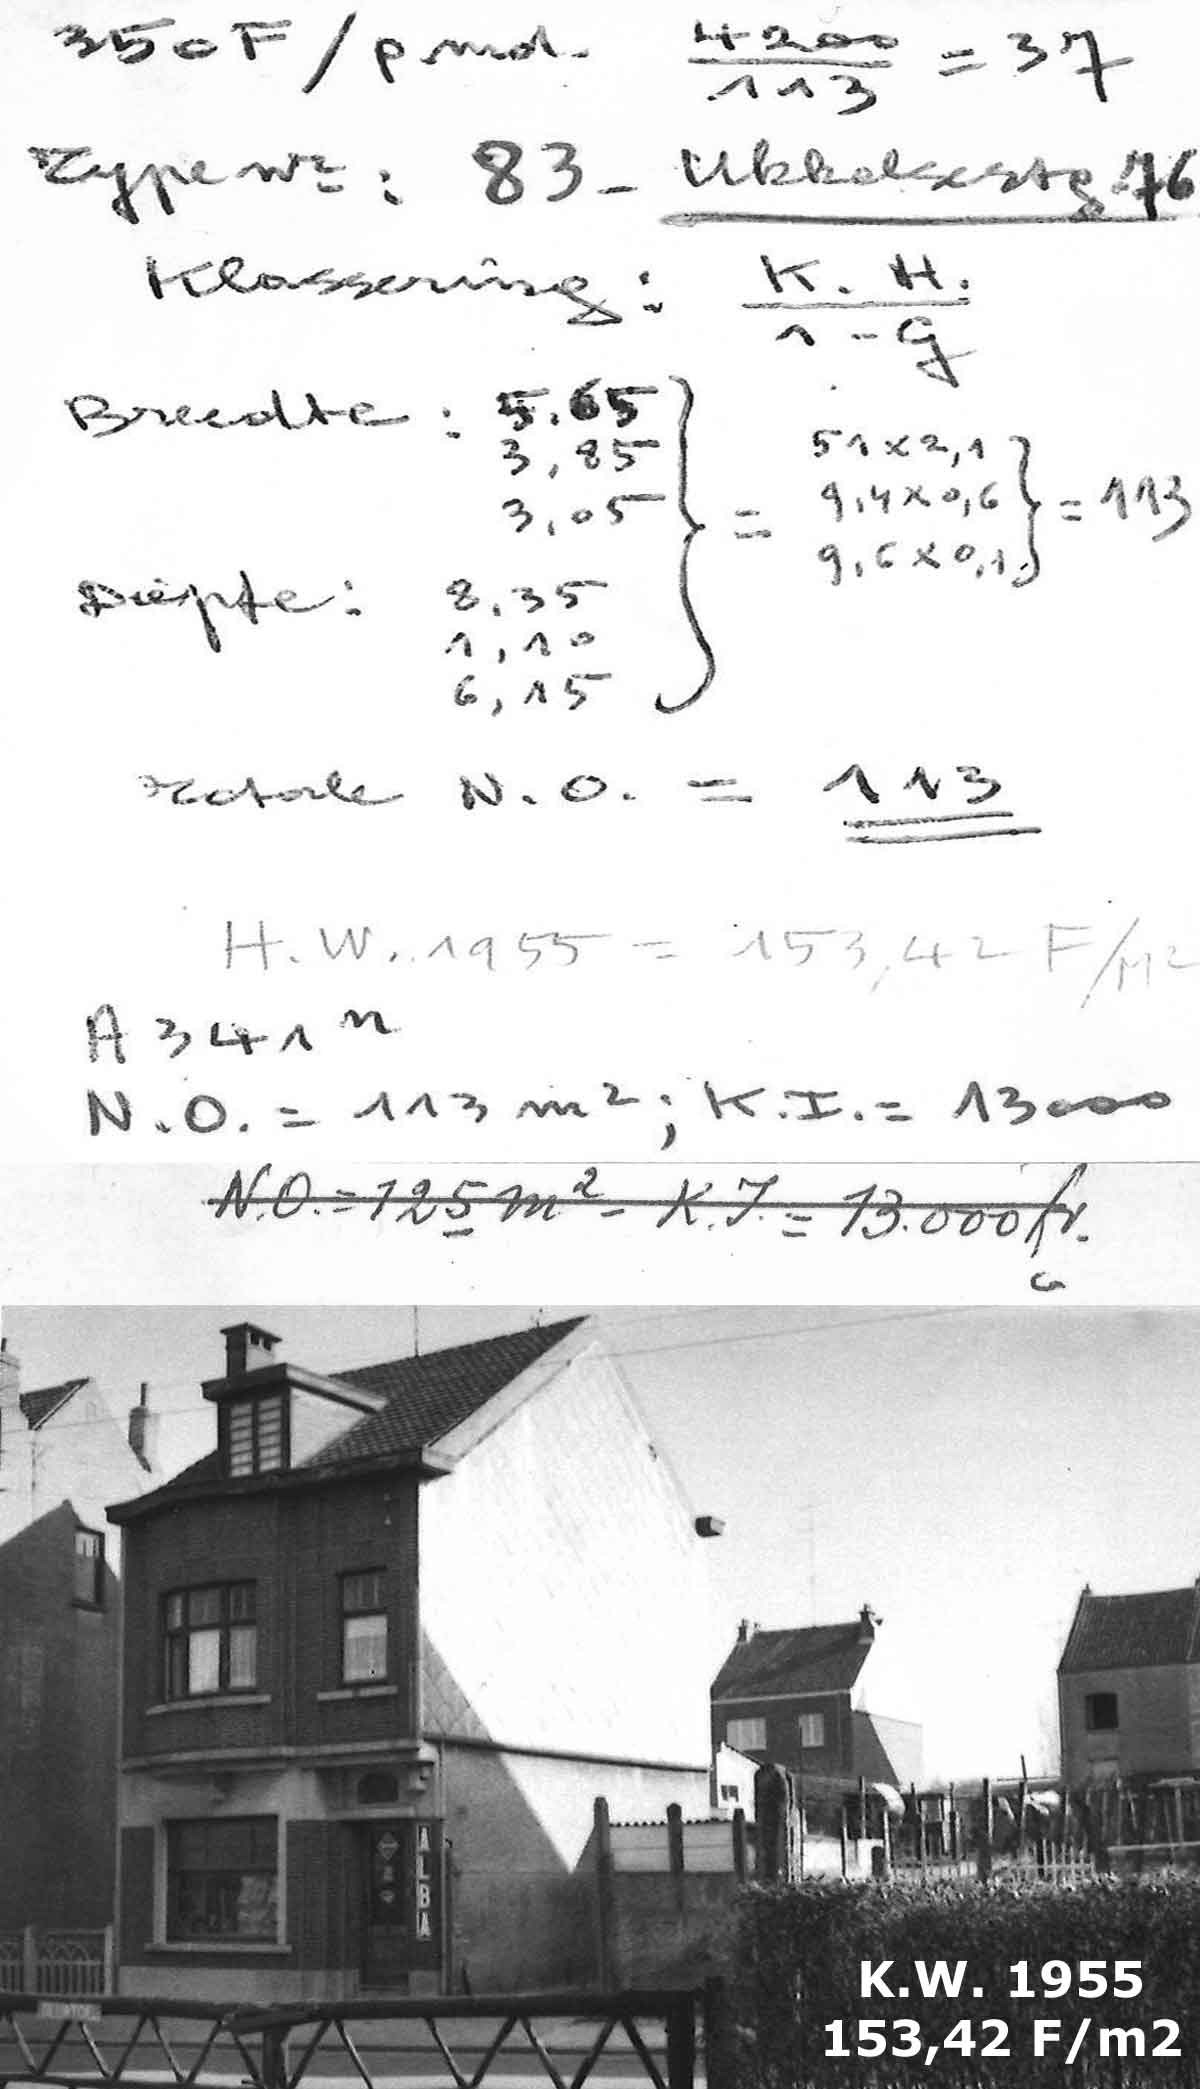 350F/pmd. 4200/113 = 37
Type nr: 83 - Ukkelsestg 76
Klassering: K.H./1-G
Breedte: 5.65
3,85
3,05
51x2,1
9,4x0,6 = 113
9,6x0,1
Diepte: 8,35
1,10
6,15
Totale N.O. = 113
H.W. 1955 = 153,42 F/M2
A 341 n
N.O. = 113 m2; K.I. = 13000
N.O. = 125 m2 - K.I. = 13.000 fr.
ALBA
K.W. 1955
153,42 F/m2